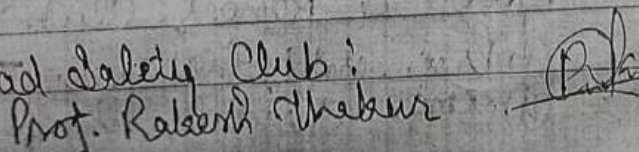 ad Safety Club:
Prof. Rakesh Thakur